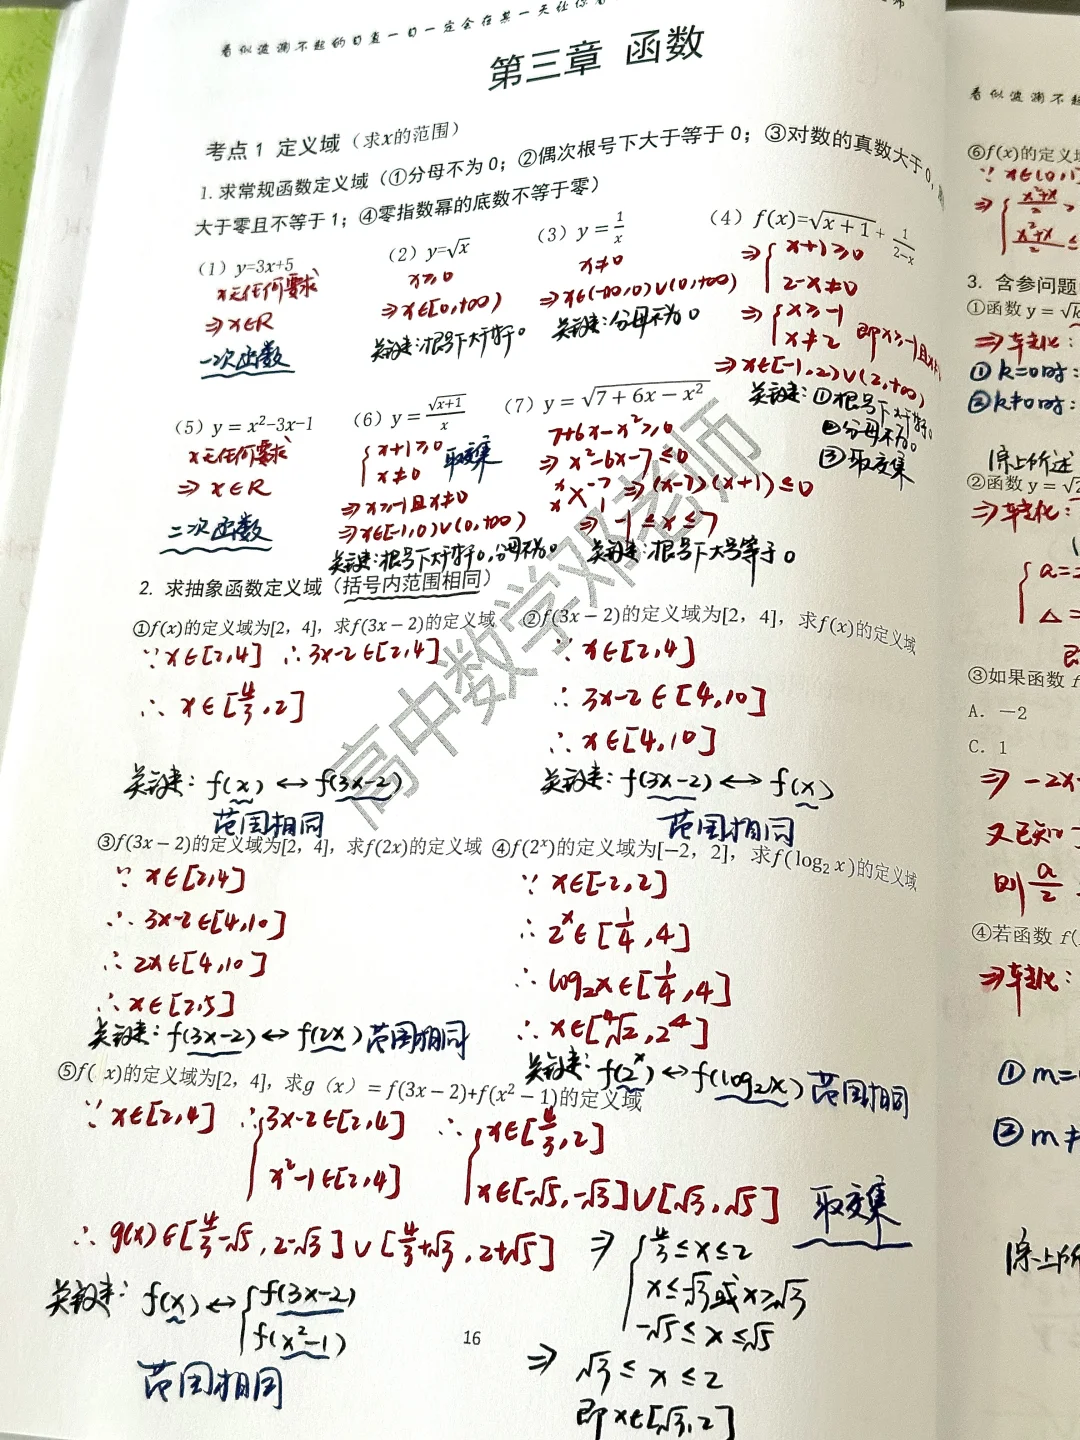 看似波澜不起的日复一日一定会在某一天让你看
第三章 函数
考点1 定义域（求x的范围）
1. 求常规函数定义域（①分母不为0；②偶次根号下大于等于0；③对数的真数大于0，
大于零且不等于1；④零指数幂的底数不等于零）
（1）y=3x+5
x无任何要求
⇒x∈R
一次函数
（2）y=√x
x≥0
⇒x∈[0,+∞)
关键：根号下大于等于0
（3）y=1/x
x≠0
⇒x∈(-∞,0)∪(0,+∞)
关键：分母不为0
（4）f(x)=√(x+1)+1/(2-x)
⇒{x+1≥0
2-x≠0
⇒{x≥-1
x≠2 即x≥-1且x≠
⇒x∈[-1,2)∪(2,+∞)
关键：①根号下大于等于0
②分母不为0
③取交集
（5）y=x²-3x-1
x无任何要求
⇒x∈R
二次函数
（6）y=√(x+1)/x
{x+1≥0
x≠0 取交集
⇒x≥-1且x≠0
⇒x∈[-1,0)∪(0,+∞)
关键：根号下大于等于0,分母不为0
（7）y=√(7+6x-x²)
7+6x-x²≥0
⇒x²-6x-7≤0
x -7
x 1 ⇒(x-7)(x+1)≤0
⇒-1≤x≤7
关键：根号下大号等于0
2. 求抽象函数定义域（括号内范围相同）
①f(x)的定义域为[2，4]，求f(3x-2)的定义域
∵x∈[2,4] ∴3x-2∈[2,4]
∴x∈[4/3,2]
关键：f(x)↔f(3x-2)
范围相同
②f(3x-2)的定义域为[2，4]，求f(x)的定义域
∵x∈[2,4]
∴3x-2∈[4,10]
∴x∈[4,10]
关键：f(3x-2)↔f(x)
范围相同
③f(3x-2)的定义域为[2，4]，求f(2x)的定义域
∵x∈[2,4]
∴3x-2∈[4,10]
∴2x∈[4,10]
∴x∈[2,5]
关键：f(3x-2)↔f(2x)范围相同
④f(2ˣ)的定义域为[-2，2]，求f(log₂x)的定义域
∵x∈[-2,2]
∴2ˣ∈[1/4,4]
∴log₂x∈[1/4,4]
∴x∈[⁴√2,2⁴]
关键：f(2ˣ)↔f(log₂x)范围相同
⑤f( x)的定义域为[2，4]，求g（x）=f(3x-2)+f(x²-1)的定义域
∵x∈[2,4] ∴{3x-2∈[2,4]
x²-1∈[2,4]
∴{x∈[4/3,2]
x∈[-√5,-√3]∪[√3,√5] 取交集
∴g(x)∈[4/3-√5,2-√3]∪[4/3+√3,2+√5]
⇒{4/3≤x≤2
x≤-√3或x≥√3
-√5≤x≤√5
⇒√3≤x≤2
即x∈[√3,2]
关键：f(x)↔{f(3x-2)
f(x²-1)
范围相同
16
高中数学邓老师
看似波澜不起
⑥f(x)的定义
∵x∈(0,1
⇒{(x²+x)/2
(x²+x)/2≤
3. 含参问题
①函数y=√
⇒转化：
①k=0时：
②k≠0时：
综上所述
②函数y=√
⇒转化：
{a=
△=
③如果函数f
A. -2
C. 1
⇒-2x
又已知
则a/2
④若函数f(
⇒转化：
①m=
②m≠
综上所